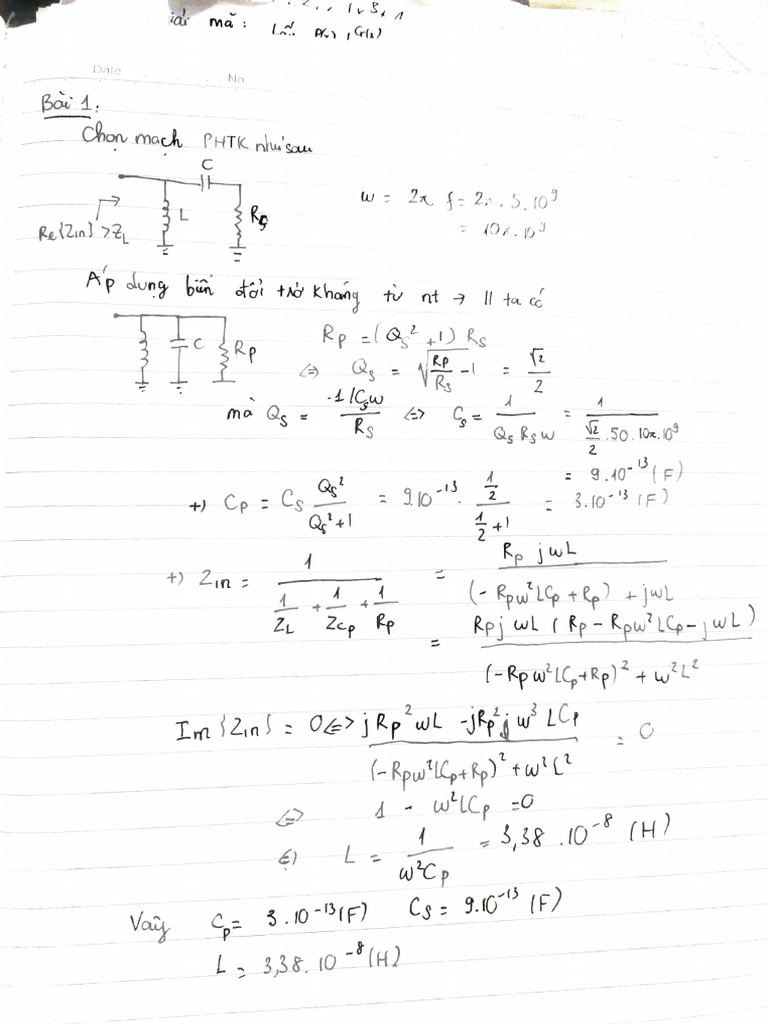 mã:
Date No.
Bài 1.
Chọn mạch PHTK như sau
C
L
Re{Zin} > ZL
ω = 2π f = 2π . 5.10⁹
= 10π.10⁹
Áp dụng biến đổi trở kháng từ nt → || ta có
C Rp
Rp = (Qs² + 1) Rs
⇔ Qs = √(Rp/Rs - 1) = √2/2
mà Qs = (-1/Csω)/Rs ⇔ Cs = 1/(Qs Rs ω) = 1/(√2/2 . 50 . 10π.10⁹)
= 9.10⁻¹³ (F)
+) Cp = Cs Qs²/(Qs²+1) = 9.10⁻¹³ . (1/2)/(1/2 + 1) = 3.10⁻¹³ (F)
+) Zin = 1/(1/ZL + 1/Zcp + 1/Rp) = Rp jωL/((-Rpω²LCp + Rp) + jωL)
= Rpj ωL (Rp - Rpω²LCp - jωL)/((-Rpω²LCp + Rp)² + ω²L²)
Im{Zin} = 0 ⇔ (jRp²ωL - jRp²j ω³ LCp)/((-Rpω²LCp + Rp)² + ω²L²) = 0
⇔ 1 - ω²LCp = 0
⇔ L = 1/(ω²Cp) = 3,38 . 10⁻⁸ (H)
Vậy Cp = 3.10⁻¹³ (F) Cs = 9.10⁻¹³ (F)
L = 3,38.10⁻⁸ (H)